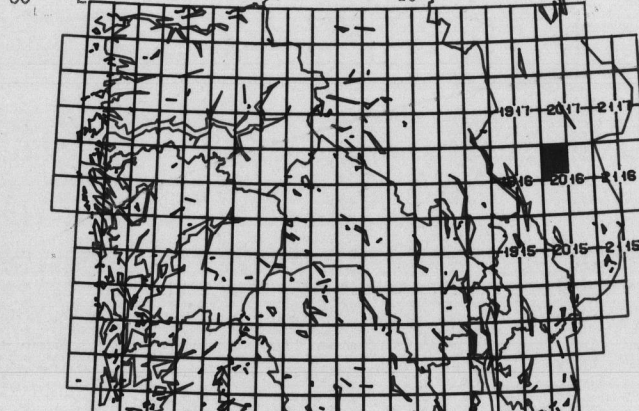 1917 2017 2117
2016 2116
1915 2015 2115